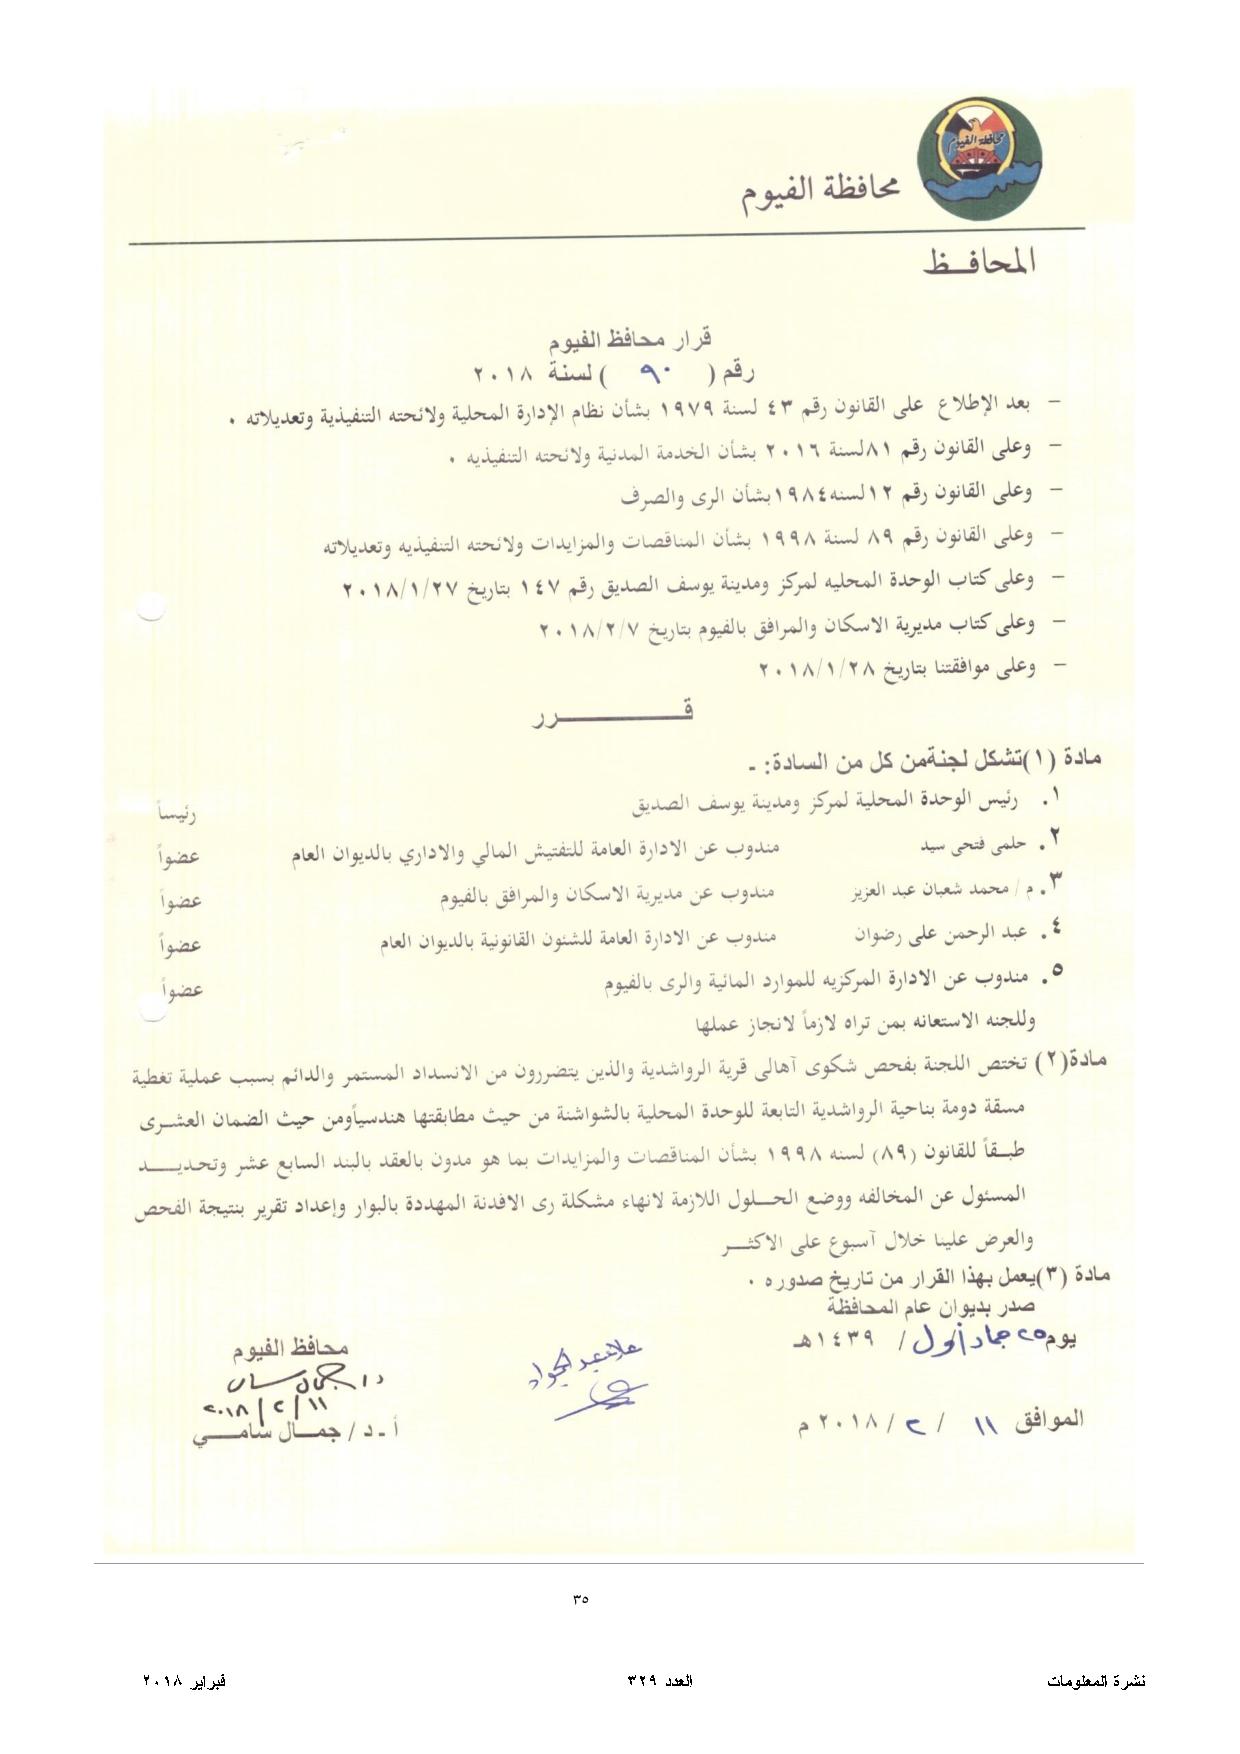 محافظة الفيوم
محافظة الفيوم
المحافــظ
قرار محافظ الفيوم
رقم ( ٩٠ ) لسنة ٢٠١٨
– بعد الإطلاع على القانون رقم ٤٣ لسنة ١٩٧٩ بشأن نظام الإدارة المحلية ولائحته التنفيذية وتعديلاته .
– وعلى القانون رقم ٨١لسنة ٢٠١٦ بشأن الخدمة المدنية ولائحته التنفيذيه .
– وعلى القانون رقم ١٢لسنه١٩٨٤بشأن الرى والصرف
– وعلى القانون رقم ٨٩ لسنة ١٩٩٨ بشأن المناقصات والمزايدات ولائحته التنفيذيه وتعديلاته
– وعلى كتاب الوحدة المحليه لمركز ومدينة يوسف الصديق رقم ١٤٧ بتاريخ ٢٠١٨/١/٢٧
– وعلى كتاب مديرية الاسكان والمرافق بالفيوم بتاريخ ٢٠١٨/٢/٧
– وعلى موافقتنا بتاريخ ٢٠١٨/١/٢٨
قــــــــرر
مادة (١)تشكل لجنةمن كل من السادة: ـ
١. رئيس الوحدة المحلية لمركز ومدينة يوسف الصديق رئيساً
٢. حلمى فتحى سيد مندوب عن الادارة العامة للتفتيش المالي والاداري بالديوان العام عضواً
٣. م / محمد شعبان عبد العزيز مندوب عن مديرية الاسكان والمرافق بالفيوم عضواً
٤. عبد الرحمن على رضوان مندوب عن الادارة العامة للشئون القانونية بالديوان العام عضواً
٥. مندوب عن الادارة المركزيه للموارد المائية والرى بالفيوم عضواً
وللجنه الاستعانه بمن تراه لازماً لانجاز عملها
مادة(٢) تختص اللجنة بفحص شكوى آهالى قرية الرواشدية والذين يتضررون من الانسداد المستمر والدائم بسبب عملية تغطية
مسقة دومة بناحية الرواشدية التابعة للوحدة المحلية بالشواشنة من حيث مطابقتها هندسيأومن حيث الضمان العشرى
طبـقاً للقانون (٨٩) لسنه ١٩٩٨ بشأن المناقصات والمزايدات بما هو مدون بالعقد بالبند السابع عشر وتحديــــد
المسئول عن المخالفه ووضع الحــلول اللازمة لانهاء مشكلة رى الافدنة المهددة بالبوار وإعداد تقرير بنتيجة الفحص
والعرض علينا خلال آسبوع على الاكثــر
مادة (٣)يعمل بهذا القرار من تاريخ صدوره .
صدر بديوان عام المحافظة
يوم ٢٥ جماد أول / ١٤٣٩هـ
الموافق ١١ / ٢ / ٢٠١٨ م
علاء عبد الجواد
محافظ الفيوم
د / جمال سامى
١١ / ٢ / ٢٠١٨
أ ـ د / جمــال سامـــي
٣٥
نشرة المعلومات العدد ٣٢٩ فبراير ٢٠١٨